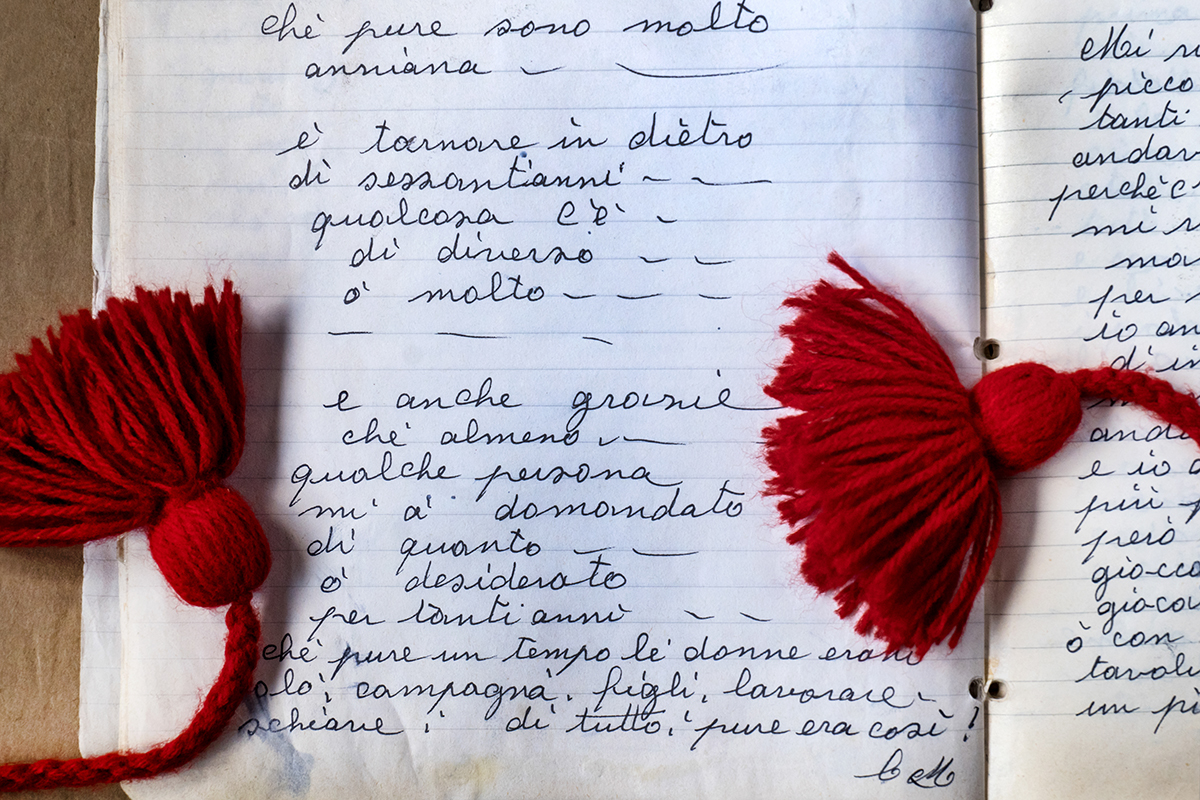 chè pure sono molto
anniana
è tornare in diètro
dì sessant'anni
qualcosa c'è
dì diverso
o' molto
e anche grazie
chè almeno
qualche persona
mi à domandato
dì quanto
ò desiderato
per tanti anni
chè pure un tempo le donne erano
olo, campagna, figli, lavorare
schiave, di tutto, pure era così!
Mi
picco
tanti
andav
perchè c
mi
ma
per
io an
di in
and
e io
più
però
giocca
gioca
ò con
tavoli
un pi